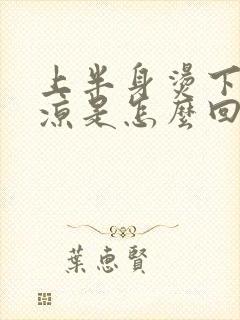 上半身燙下
涼是怎麼回
葉惠賢